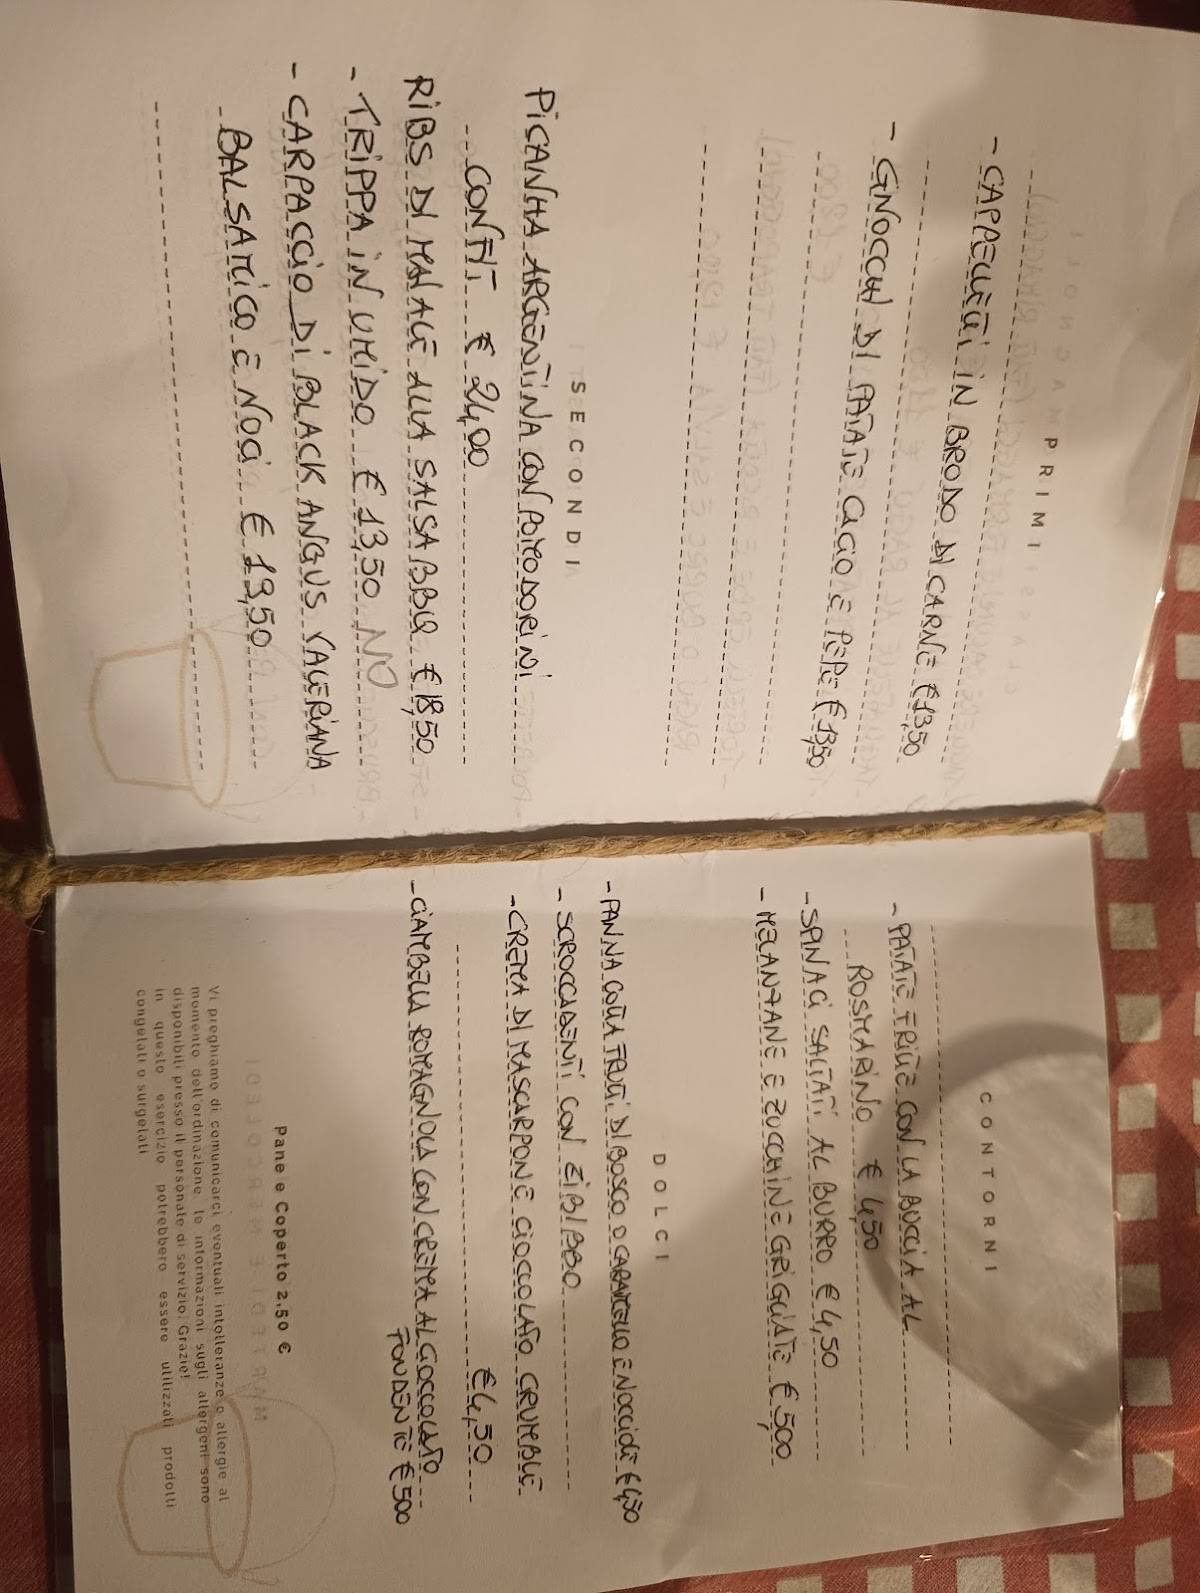 PRIMI
- CAPPELLETTI IN BRODO DI CARNE € 13,50
- GNOCCHI DI PATATE CACIO E PEPE € 13,50
SECONDI
PICANHA ARGENTINA CON POMODORINI
CONFIT € 24,00
RIBS DI MAIALE ALLA SALSA BBQ € 18,50
- TRIPPA IN UMIDO € 13,50 NO
- CARPACCIO DI BLACK ANGUS VALERIANA
BALSAMICO E NOCI € 19,50
CONTORNI
- PATATE FRITTE CON LA BUCCIA AL
ROSMARINO € 4,50
- SPINACI SALTATI AL BURRO € 4,50
- MELANZANE E ZUCCHINE GRIGLIATE € 5,00
DOLCI
- PANNA COTTA FRUTTI DI BOSCO O CARAMELLO E NOCCIOLE € 4,50
- SCROCCADENTI CON ZIBIBBO
- CREMA DI MASCARPONE CIOCCOLATO CRUMBLE
€ 4,50
- CIAMBELLA ROMAGNOLA CON CREMA AL CIOCCOLATO
FONDENTE € 5,00
Pane e Coperto 2,50 €
Vi preghiamo di comunicarci eventuali intolleranze o allergie al
momento dell'ordinazione, le informazioni sugli allergeni sono
disponibili presso il personale di servizio. Grazie!
in questo esercizio potrebbero essere utilizzati prodotti
congelati o surgelati